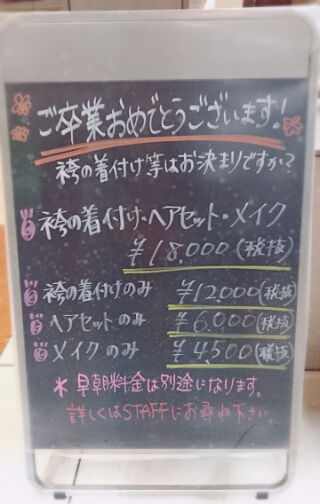 ご卒業おめでとうございます!
袴の着付け等はお決まりですか?
袴の着付け・ヘアセット・メイク
¥18.000(税抜)
袴の着付けのみ ¥12.000(税抜)
ヘアセットのみ ¥6.000(税抜)
メイクのみ ¥4.500(税抜)
* 早朝料金は別途になります。
詳しくはSTAFFにお尋ね下さい。